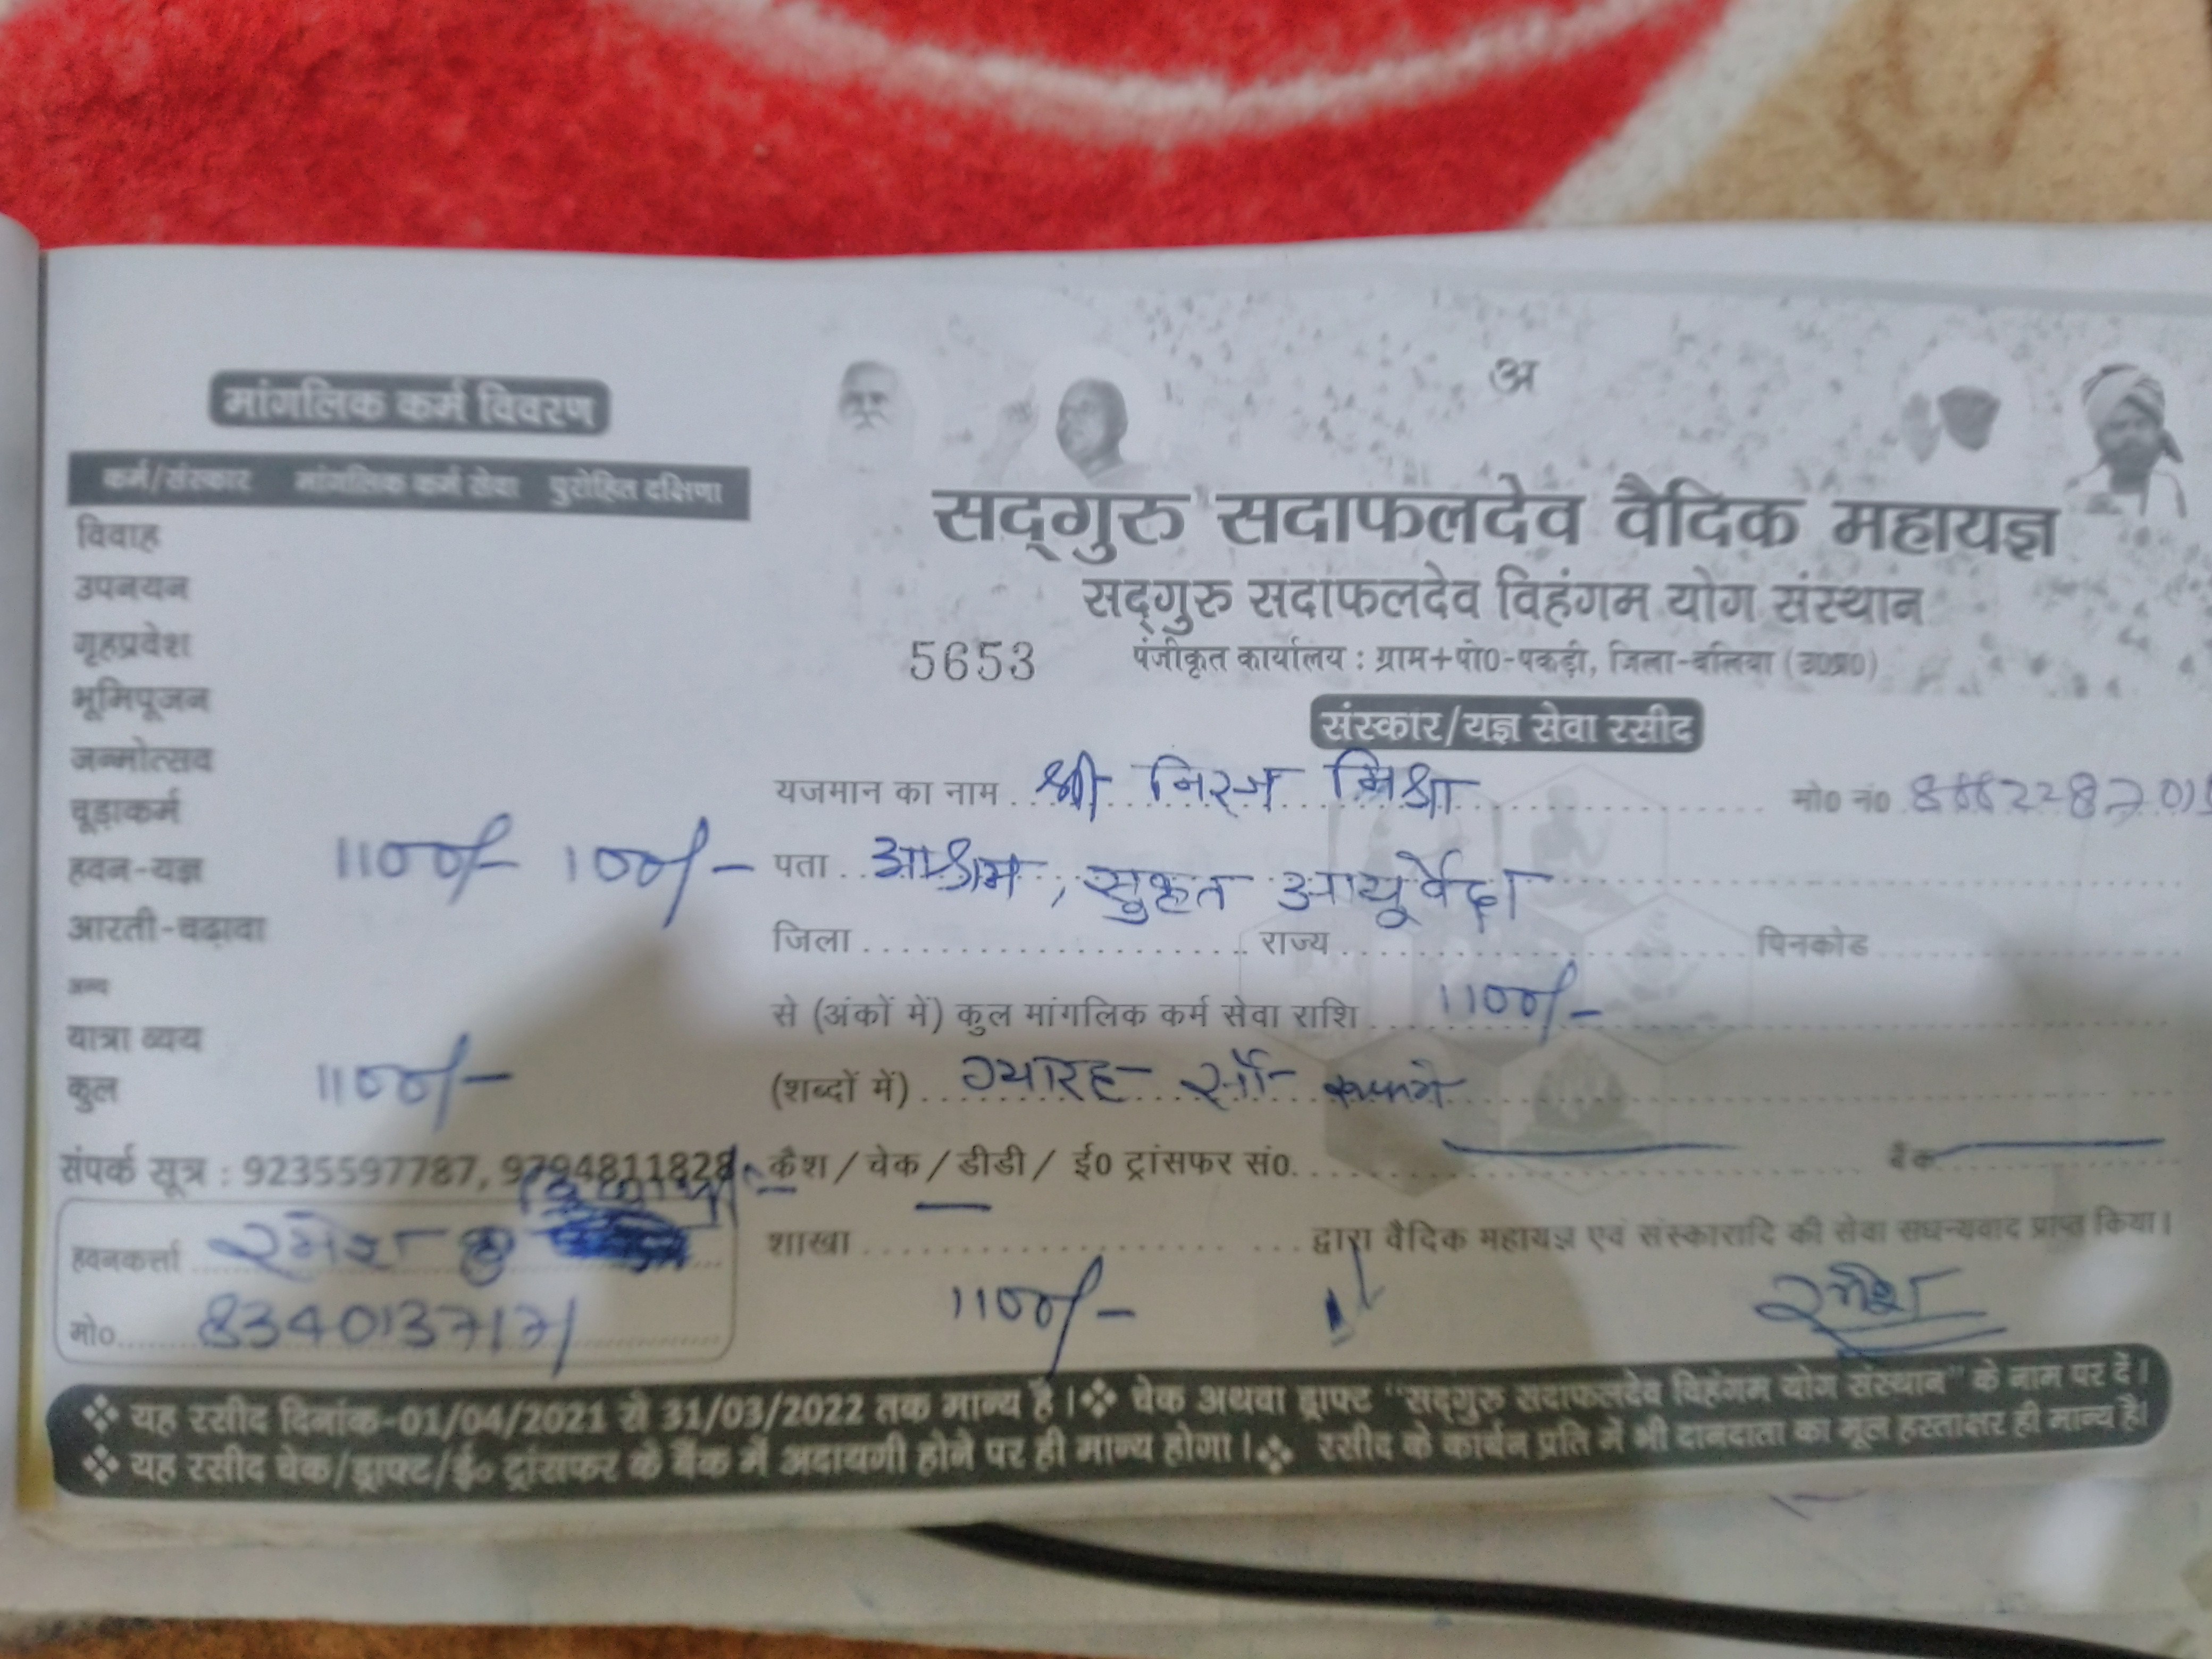 अ
मांगलिक कर्म विवरण
कर्म/संस्कार मांगलिक कर्म सेवा पुरोहित दक्षिणा
विवाह
उपनयन
गृहप्रवेश
भूमिपूजन
जन्मोत्सव
चूड़ाकर्म
हवन-यज्ञ 1100/- 100/-
आरती-चढ़ावा
अन्य
यात्रा व्यय
कुल 1100/-
संपर्क सूत्र : 9235597787, 9794811828
हवनकर्त्ता रमेश
मो० 8340137171
सद्गुरु सदाफलदेव वैदिक महायज्ञ
सद्गुरु सदाफलदेव विहंगम योग संस्थान
5653 पंजीकृत कार्यालय : ग्राम+पो0-पकड़ी, जिला-बलिया (उ0प्र0)
संस्कार/यज्ञ सेवा रसीद
यजमान का नाम श्री निरज मिश्रा मो0 नं0
पता आश्रम, सुकृत आयूर्वेदा
जिला राज्य पिनकोड
से (अंकों में) कुल मांगलिक कर्म सेवा राशि 1100/-
(शब्दों में) ग्यारह सौ रूपये
कैश / चेक / डीडी / ई0 ट्रांसफर सं0. बैंक
शाखा द्वारा वैदिक महायज्ञ एवं संस्कारादि की सेवा सधन्यवाद प्राप्त किया।
1100/- रमेश
❖ यह रसीद दिनांक-01/04/2021 से 31/03/2022 तक मान्य है।❖ चेक अथवा ड्राफ्ट "सद्गुरु सदाफलदेव विहंगम योग संस्थान" के नाम पर दें।
❖ यह रसीद चेक/ड्राफ्ट/ई० ट्रांसफर के बैंक में अदायगी होने पर ही मान्य होगा।❖ रसीद के कार्बन प्रति में भी दानदाता का मूल हस्ताक्षर ही मान्य है।